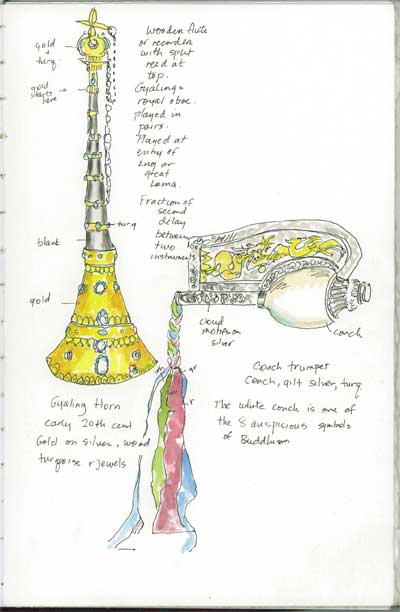 gold
+
turq.
gold
starts
here
Wooden flute
or recorder
with split
reed at
top.
Gyaling =
royal oboe.
played in
pairs.
Played at
entry of
king or
great
Lama.
Fraction of
second
delay
between
two
instruments
turq
blank
gold
cloud
motifs on
silver
conch
gr
r
Gyaling Horn
early 20th cent
Gold on silver, wood
turquoise + jewels
Conch trumpet
Conch, gilt silver, turq
The white conch is one of
the 8 auspicious symbols
of Buddhism